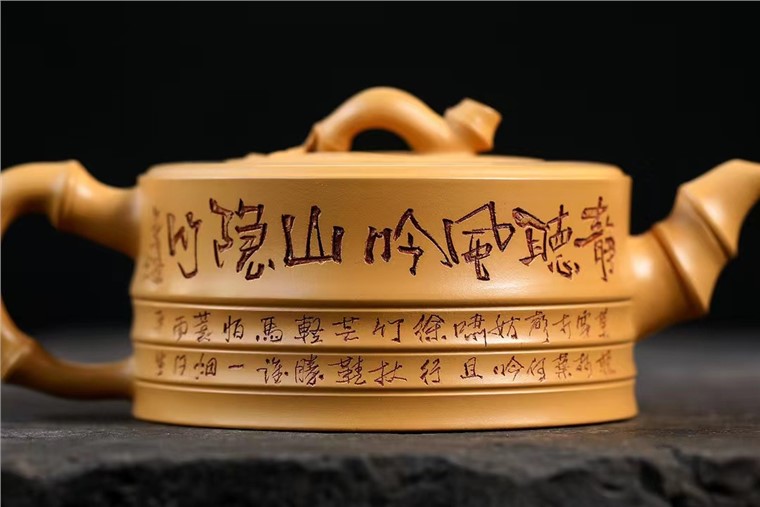 靜聽風吟山隐竹
莫聽
穿林
打葉
聲何
妨吟
嘯且
徐行
竹杖
芒鞋
輕勝
馬誰
怕一
蓑烟
雨任
平生